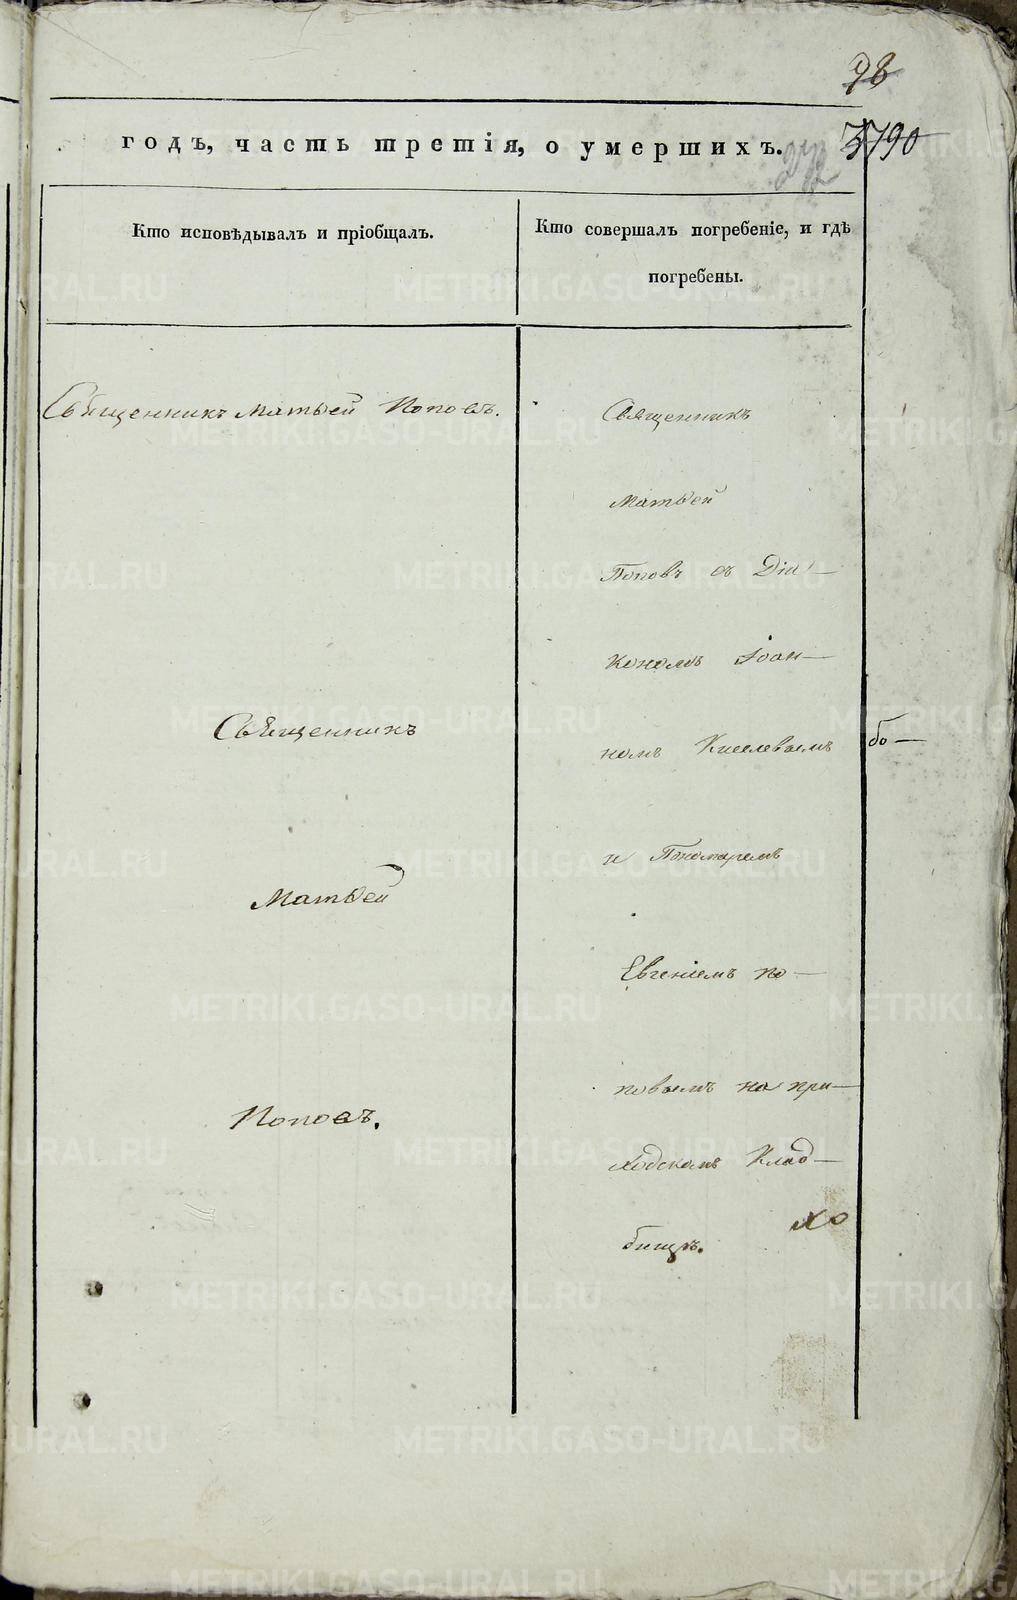 98
годъ, часть третія, о умершихъ.
3790
Кто исповѣдывалъ и пріобщалъ.
Кто совершалъ погребеніе, и гдѣ
погребены.
Священникъ Матвѣй Поповъ.
Священникъ
Матвѣй
Поповъ съ Діа-
кономъ Іоан-
номъ Киселевымъ
и Пономаремъ
Евгеніемъ По-
повымъ на при-
ходскомъ Клад-
бищѣ.
Священникъ
Матвѣй
Поповъ.
бо-
хо
METRIKI.GASO-URAL.RU